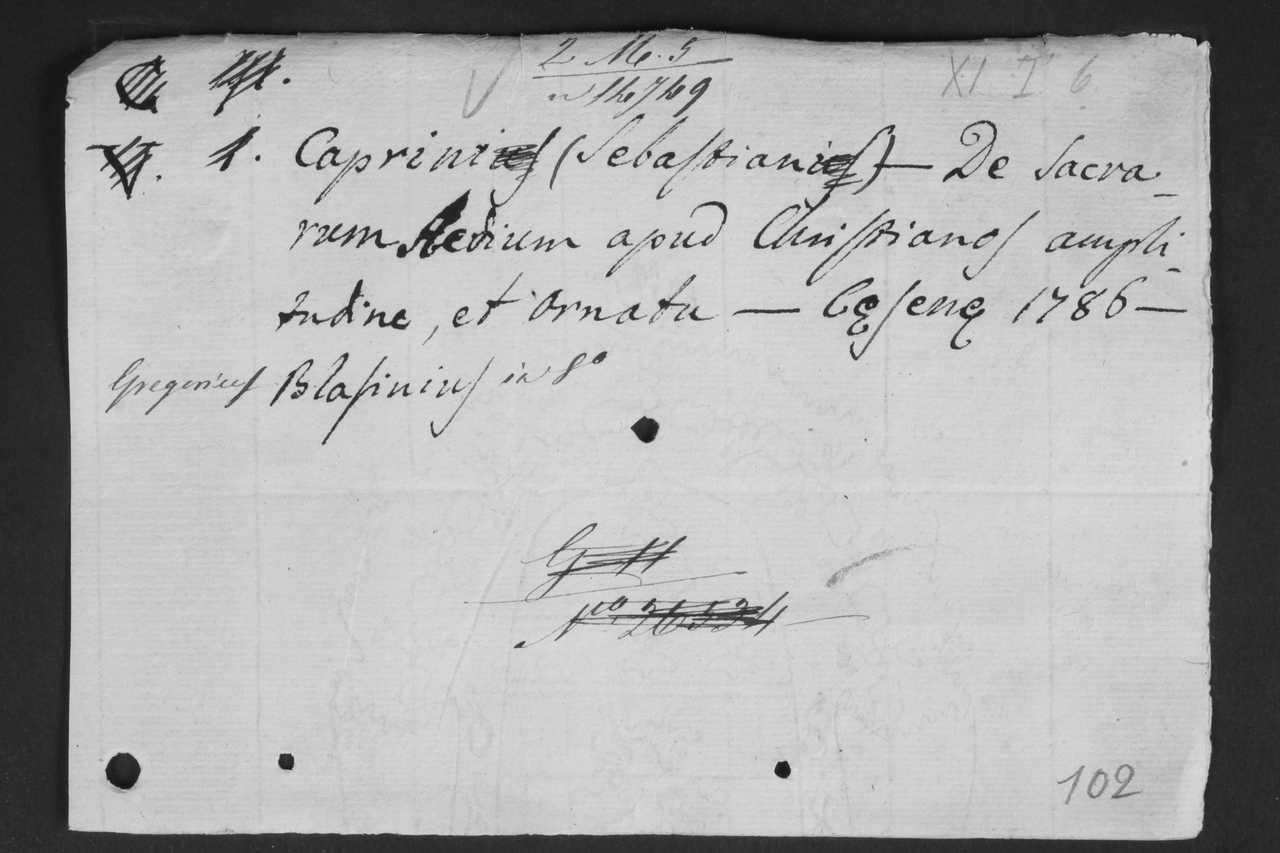 2 M. 5
n 14769
XI I 6
1. Caprini (Sebastiani) — De Sacra-
rum Aedium apud Christianos ampli-
tudine, et ornatu — Cęsenę 1786 —
Gregorius Blasinius in 8º
G 11
Nº 26534
102